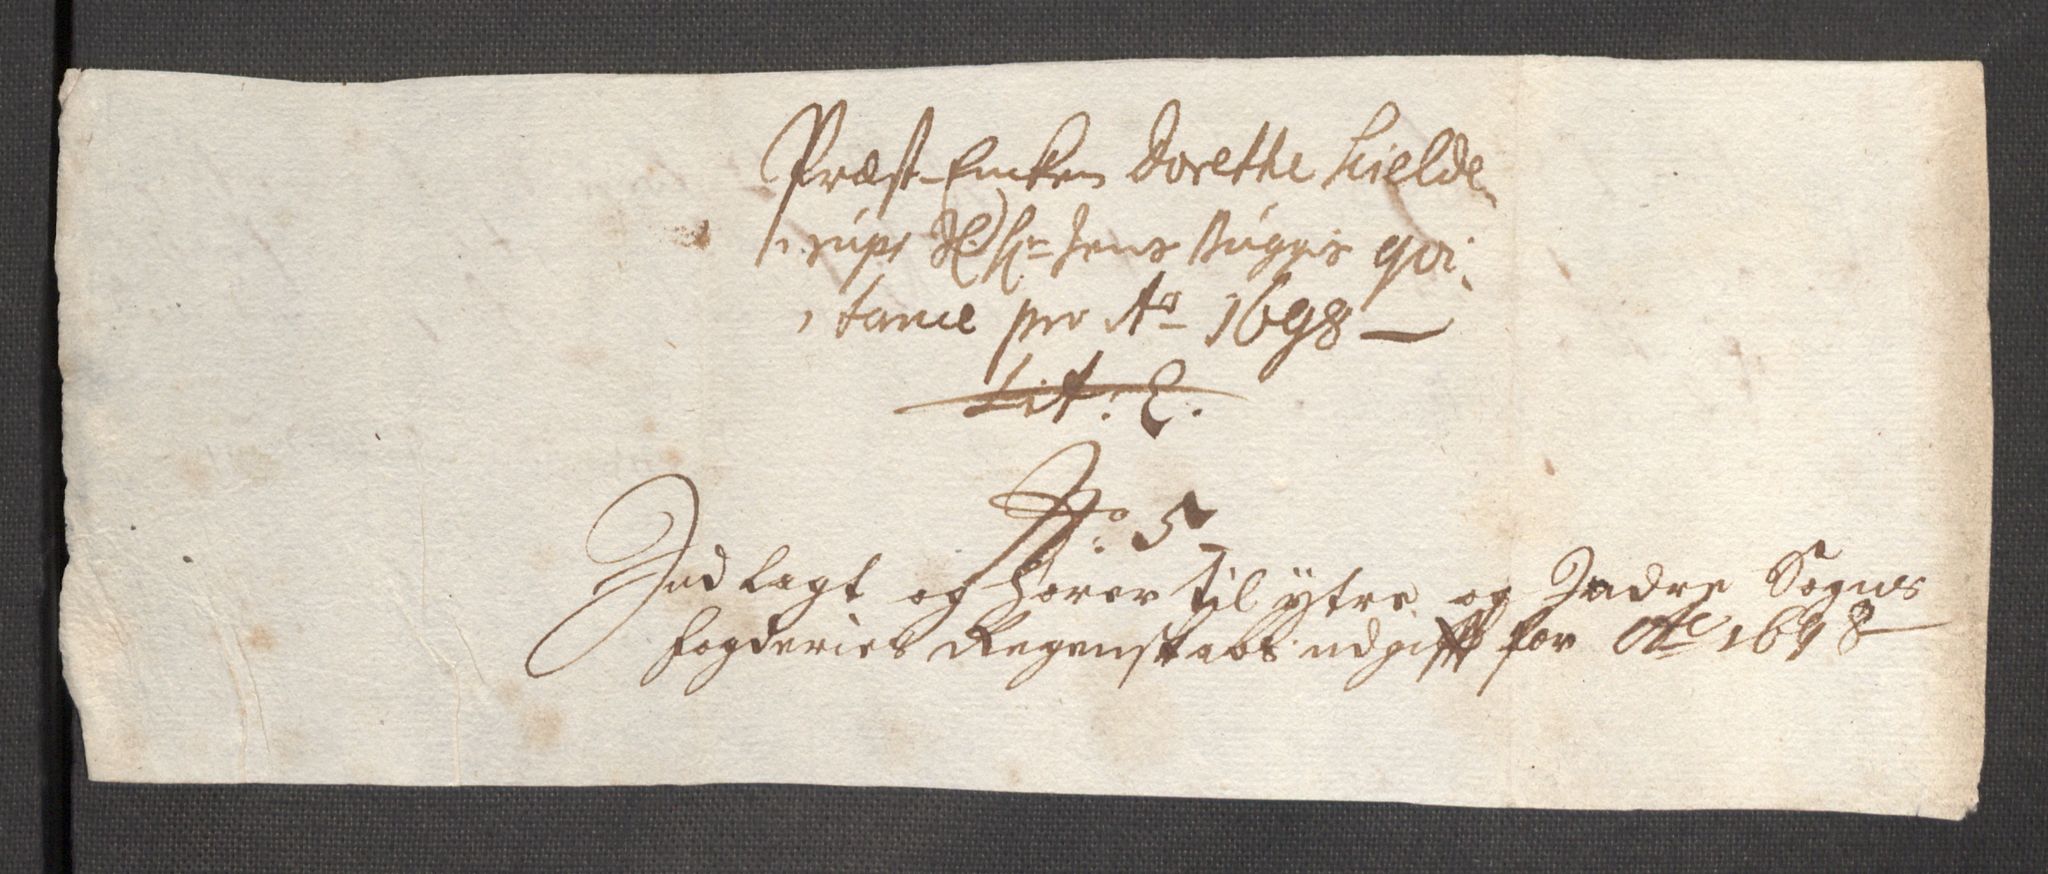 Præst-Encken Dorethe Hielde-
rups Sl: Hr Jens Bugges qvi-
tance pro Ao 1698
Lit: E.
No: 5
Indlagt og hører til ytre og Indre Sogns
fogderies Regenskabs udgifft for Ao 1698